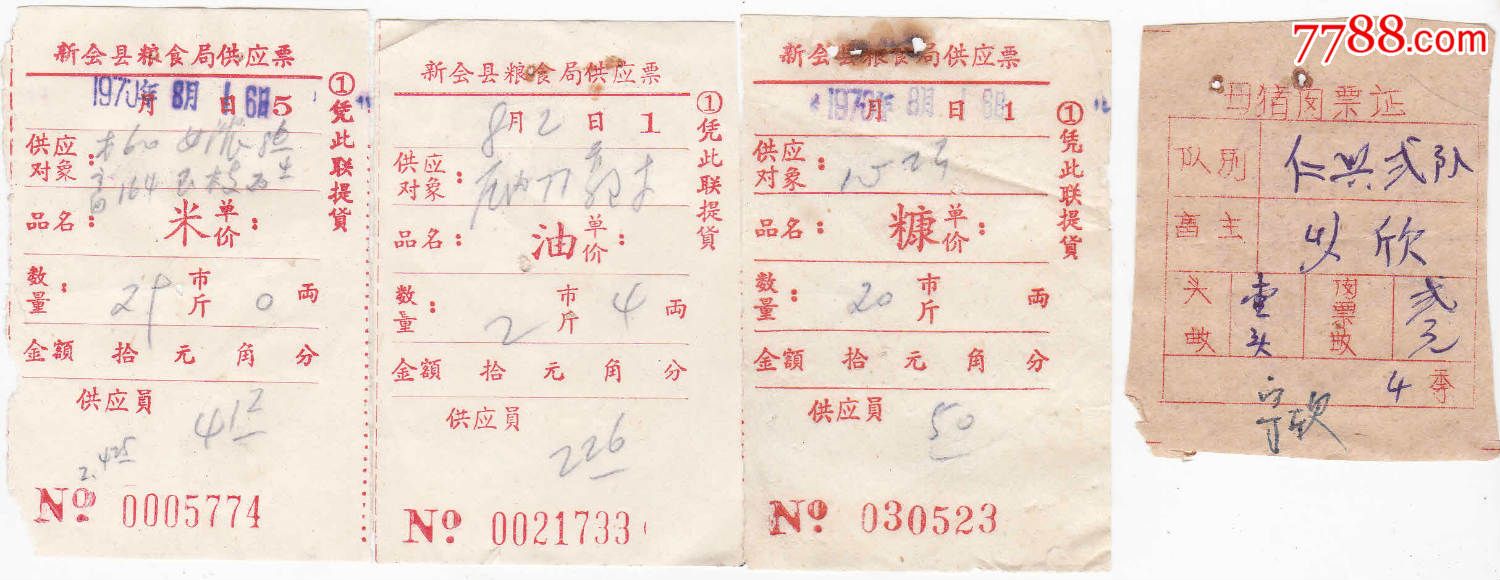 7788.com
新会县粮食局供应票
1970年 8月 16日
月 日 5
供应
对象：
品名： 米 单价：
数量： 29 市斤 0 両
金額 拾 元 角 分
供应員
41 2
2.425
№ 0005774
①凭此联提貨
新会县粮食局供应票
8月2日 1
供应
对象：
品名： 油 单价：
数量： 2 市斤 4 両
金額 拾 元 角 分
供应員
226
№ 0021733
①凭此联提貨
新会县粮食局供应票
1970年 8月 18日
月 日 1
供应
对象：
品名： 糠 单价：
数量： 20 市斤 両
金額 拾 元 角 分
供应員
50
№ 030523
①凭此联提貨
母猪肉票证
队别 仁兴弍队
畜主 欣
头数 壹头 肉票数 弍元
4 季